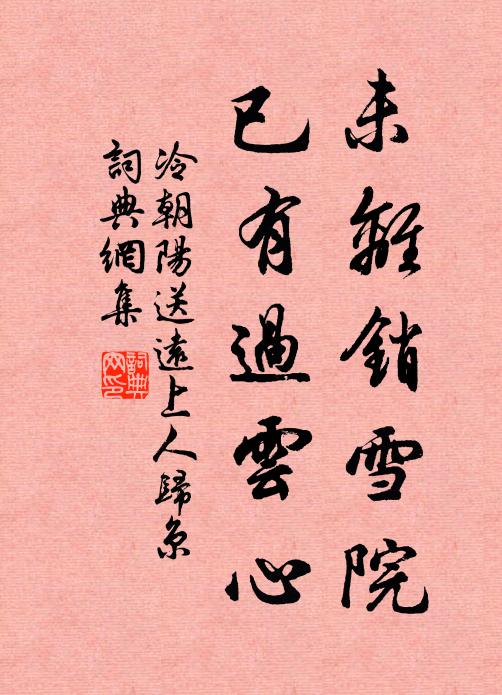 未離銷雪院
已有過雲心
冷朝陽送遠上人歸京
詞典網集
詞典網印